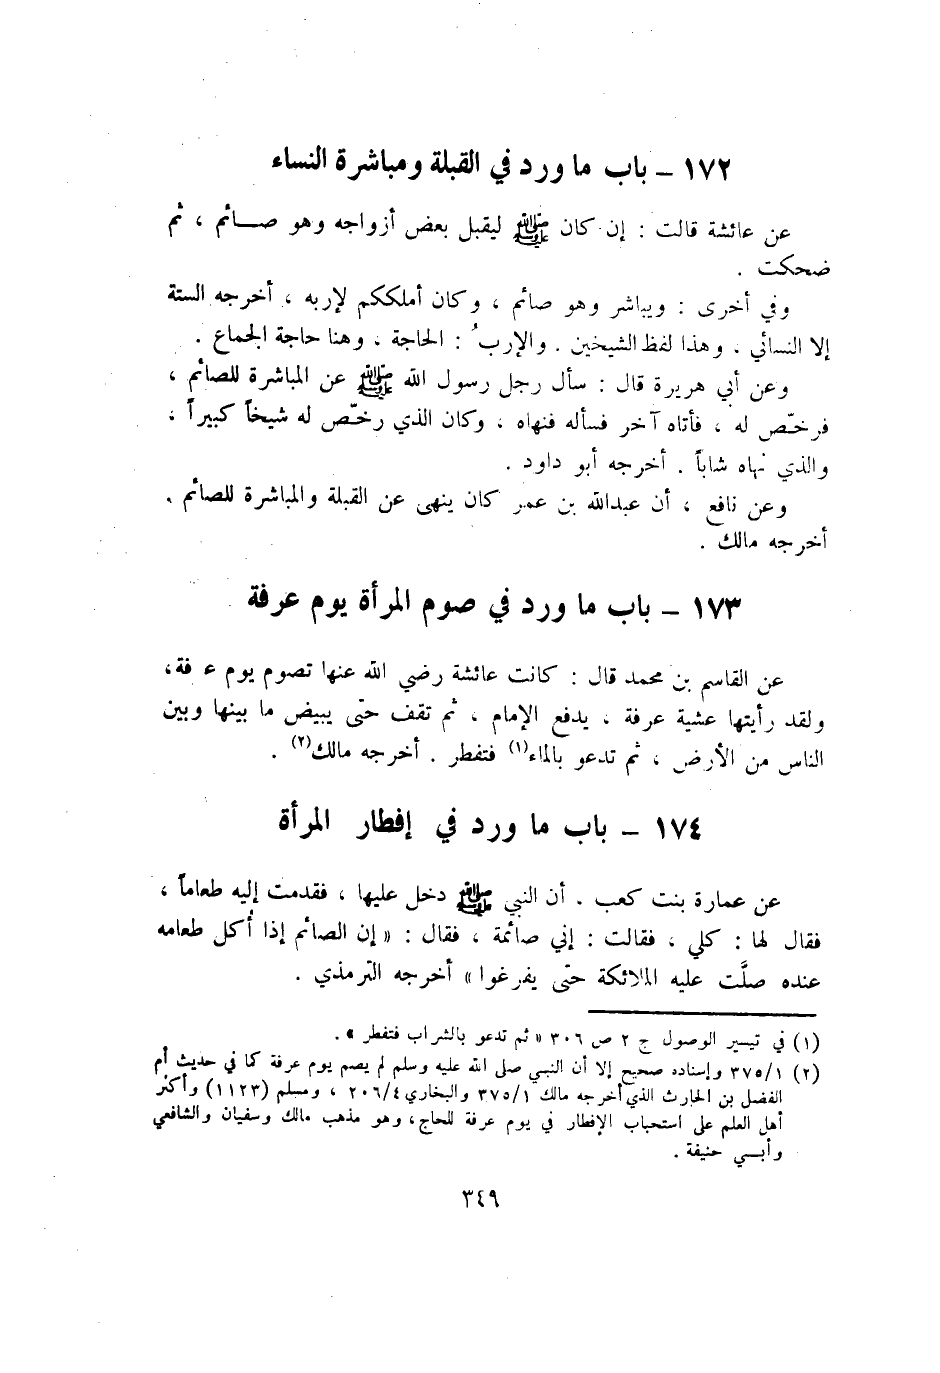 ١٧٢ – باب ما ورد في القبلة ومباشرة النساء
عن عائشة قالت : إن كان ﷺ ليقبل بعض أزواجه وهو صائم ، ثم
ضحكت .
وفي أخرى : ويباشر وهو صائم ، وكان أملككم لإربه ، أخرجه الستة
إلا النسائي . وهذا لفظ الشيخين . والإربُ : الحاجة ، وهنا حاجة الجماع .
وعن أبي هريرة قال : سأل رجل رسول الله ﷺ عن المباشرة للصائم ،
فرخّص له ، فأتاه آخر فسأله فنهاه ، وكان الذي رخّص له شيخاً كبيراً ،
والذي نهاه شاباً . أخرجه أبو داود .
وعن نافع ، أن عبدالله بن عمر كان ينهى عن القبلة والمباشرة للصائم .
أخرجه مالك .
١٧٣ – باب ما ورد في صوم المرأة يوم عرفة
عن القاسم بن محمد قال : كانت عائشة رضي الله عنها تصوم يوم ع فة ،
ولقد رأيتها عشية عرفة ، يدفع الإمام ، ثم تقف حتى يبيض ما بينها وبين
الناس من الأرض ، ثم تدعو بالماء(١) فتفطر . أخرجه مالك(٢) .
١٧٤ – باب ما ورد في إفطار المرأة
عن عمارة بنت كعب . أن النبي ﷺ دخل عليها ، فقدمت إليه طعاماً ،
فقال لها : كلي ، فقالت : إني صائمة ، فقال : « إن الصائم إذا أُكل طعامه
عنده صلَّت عليه الملائكة حتى يفرغوا » أخرجه الترمذي .
(١) في تيسير الوصول ج ٢ ص ٣٠٦ « ثم تدعو بالشراب فتفطر » .
(٢) ٣٧٥/١ وإسناده صحيح إلا أن النبي صلى الله عليه وسلم لم يصم يوم عرفة كما في حديث أم
الفضل بن الحارث الذي أخرجه مالك ٣٧٥/١ والبخاري ٢٠٦/٤ ، ومسلم (١١٢٣) وأكثر
أهل العلم على استحباب الإفطار في يوم عرفة للحاج ، وهو مذهب مالك وسفيان والشافعي
وأبي حنيفة .
٣٤٩